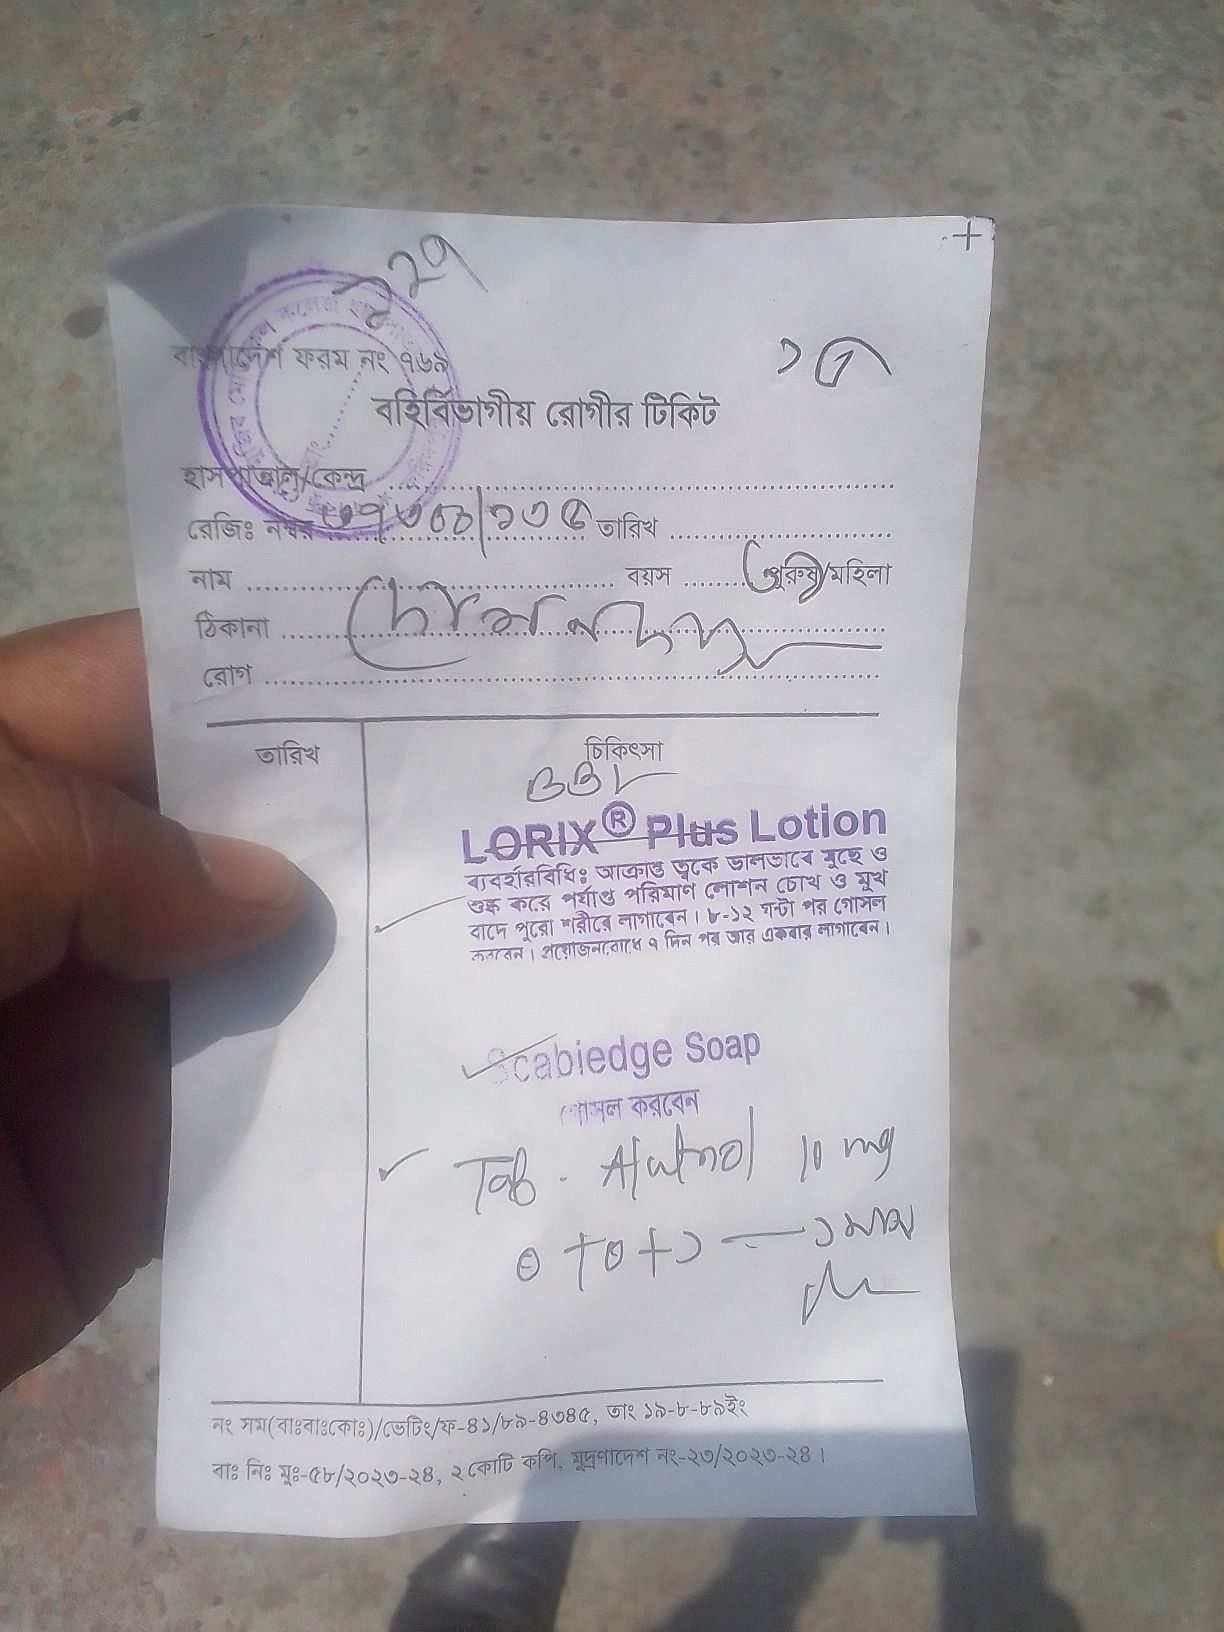 ১২৭
বাংলাদেশ ফরম নং ৭৬৯
বহির্বিভাগীয় রোগীর টিকিট
হাসপাতাল/কেন্দ্র
রেজিঃ নম্বর তারিখ
নাম বয়স পুরুষ/মহিলা
ঠিকানা
রোগ
তারিখ চিকিৎসা
LORIX® Plus Lotion
ব্যবহারবিধিঃ আক্রান্ত ত্বকে ভালভাবে মুছে ও
শুষ্ক করে পর্যাপ্ত পরিমাণ লোশন চোখ ও মুখ
বাদে পুরো শরীরে লাগাবেন। ৮-১২ ঘন্টা পর গোসল
করবেন। প্রয়োজনবোধে ৭ দিন পর আর একবার লাগাবেন।
Scabiedge Soap
গোসল করবেন
Tab. 10 mg
০+০+১ — ১ মাস
নং সম(বাঃবাঃকোঃ)/ভেটিং/ফ-৪১/৮৯-৪৩৪৫, তাং ১৯-৮-৮৯ইং
বাঃ নিঃ মুঃ-৫৮/২০২৩-২৪, ২ কোটি কপি, মুদ্রণাদেশ নং-২৩/২০২৩-২৪।